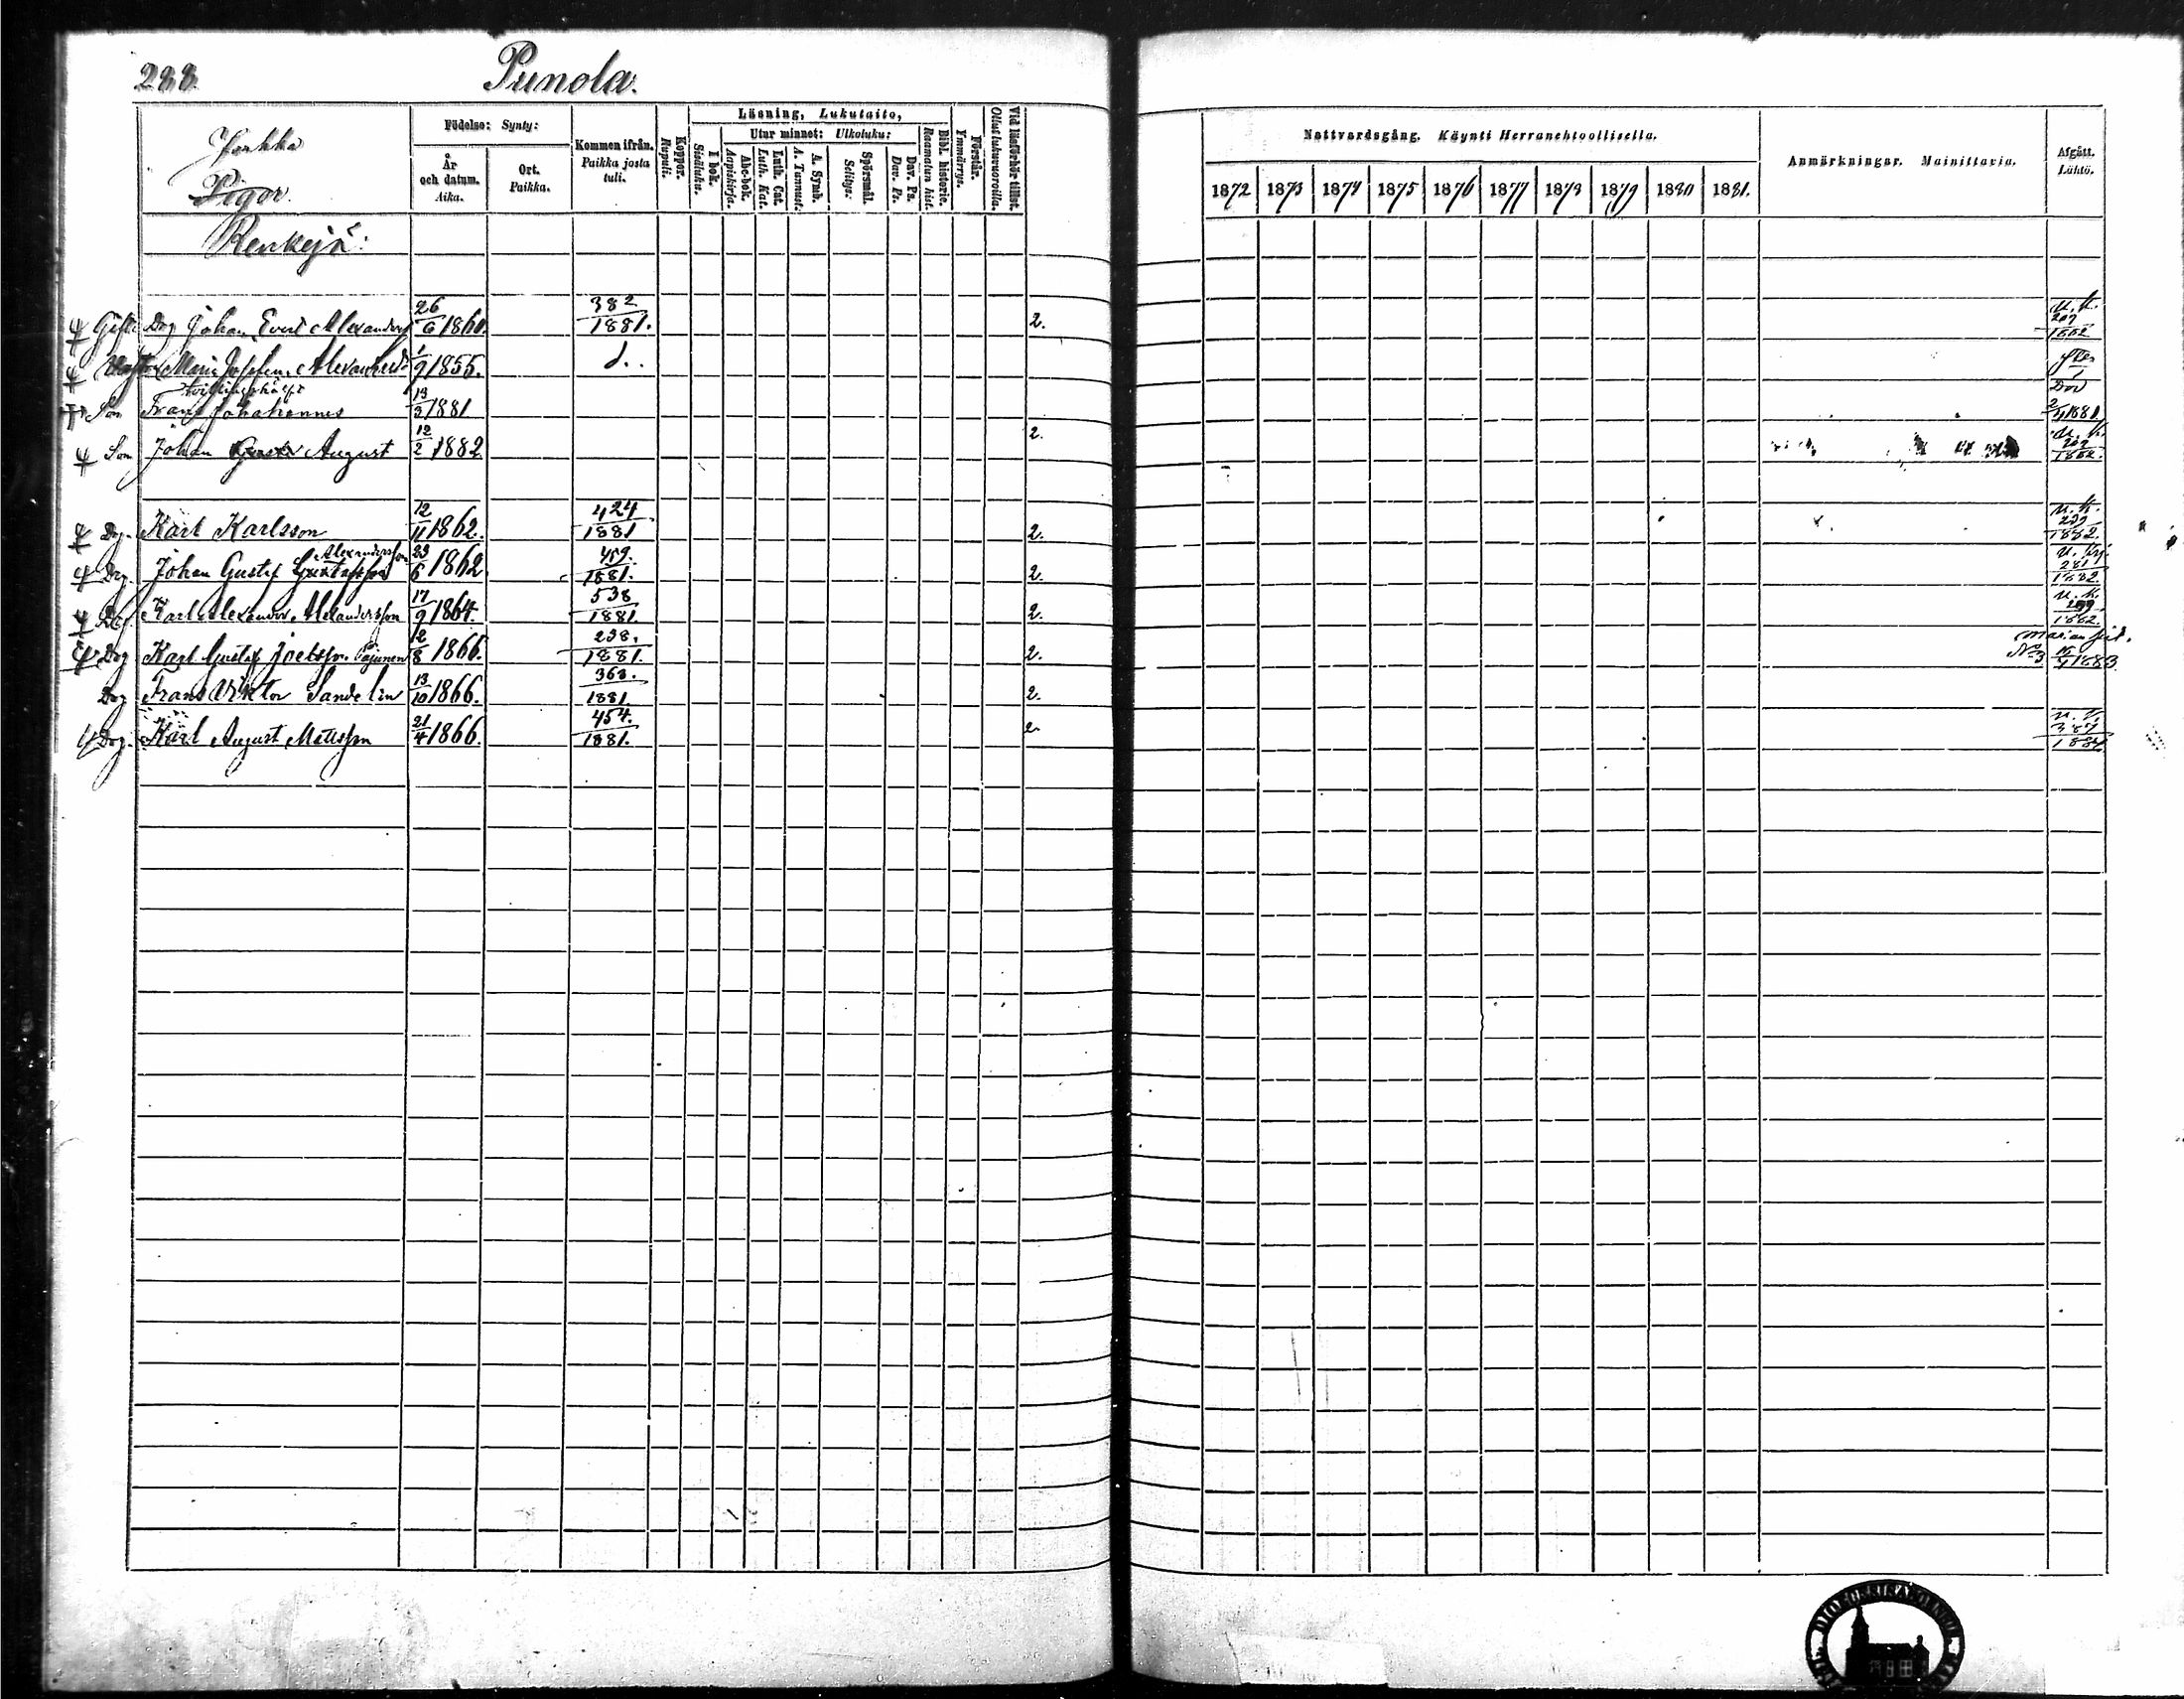 288. Punola.
Pigor.
Renkejä:
Födelse: Synty:
År och datum. Aika.
Ort. Paikka.
Kommen ifrån. Paikka josta tuli.
Koppor. Rupuli.
Läsning, Lukutaito,
I bok. Sisäluku.
Utur minnet: Ulkoluku:
Abc-bok. Aapiskirja.
Luth. Cat. Luth. Kat.
A. Symb. A. Tunnust.
Spörsmål. Selitys:
Dav. Ps. Dav. Ps.
Bibl. historie. Raamatun hist.
Förstår. Ymmärrys.
Vid läsförhör tillst. Ollut lukuvuoroilla.
Nattvardsgång. Käynti Herranehtoollisella.
1872 1873 1874 1875 1876 1877 1878 1879 1880 1881.
Anmärkningar. Mainittavia.
Afgått. Lähtö.
Gift. Drg Johan Evert 26/6 1860. 382/1881. 2.
Maria 1/9 1855. d.
tvillingshälft
Son Frans Johahannes 13/3 1881 Död 2/4 1881
Son Johan Gustav August 12/2 1882 2.
Drg. Karl Karlsson 12/11 1862. 424/1881 2. 1882.
Alexandersson
Drg. Johan Gustaf Gustafsson 23/6 1862. 459./1881. 2. 281/1882.
Karl Alexander Alexandersson 17/9 1864. 538/1881 2. 1882.
Drg Karl Gustaf Joelsson Pajunen 12/8 1866. 238./1881. 2. No 3 1883.
Drg Frans Viktor Sandelin 13/10 1866. 368./1881 2.
Drg. Karl August Mattsson 21/4 1866. 454./1881. 1884